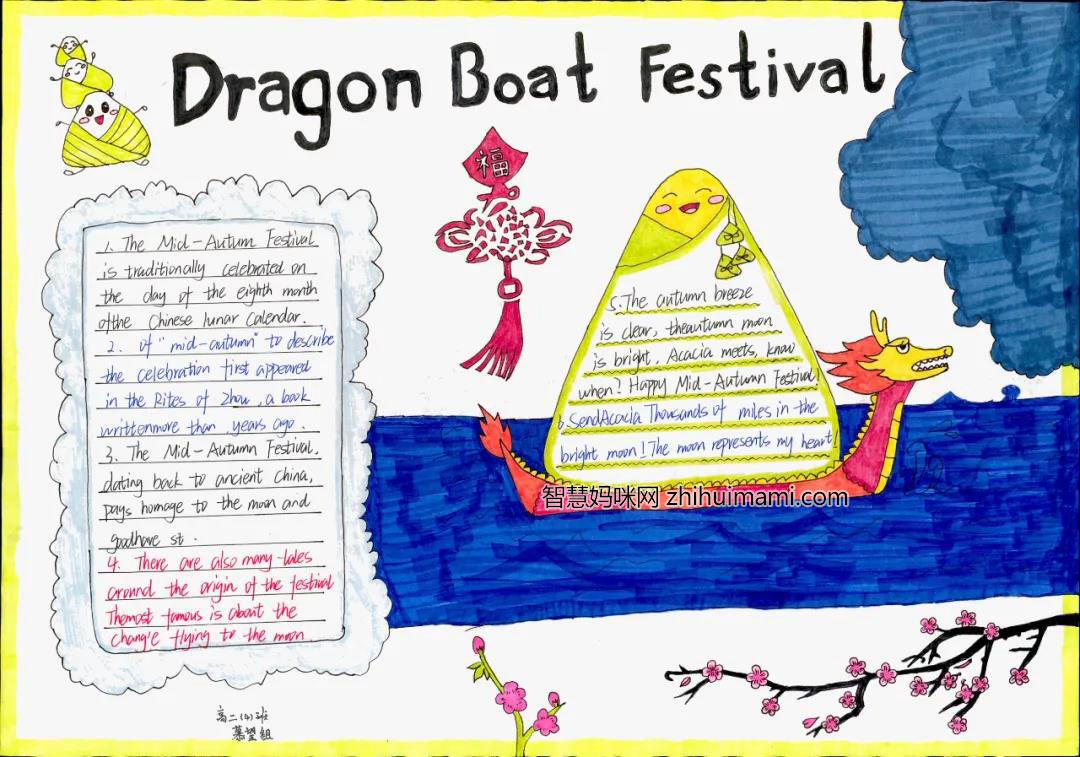 Dragon Boat Festival
福
1. The Mid-Autumn Festival
is traditionally celebrated on
the day of the eighth month
ofthe Chinese lunar Calendar.
2. of "mid-autumn" to describe
the celebration first appeared
in the Rites of Zhou, a book
writtenmore than years ago.
3. The Mid-Autumn Festival,
dating back to ancient China,
pays homage to the moon and
goodhave st.
4. There are also many tales
around the origin of the festival
Themost famous is about the
chang'e flying to the moon
5. The autumn breeze
is clear, theautumn moon
is bright. Acacia meets, know
when? Happy Mid-Autumn Festival!
6. SendAcacia Thousands of miles in the
bright moon! The moon represents my heart!
智慧妈咪网 zhihuimami.com
高二(4)班
慕望组